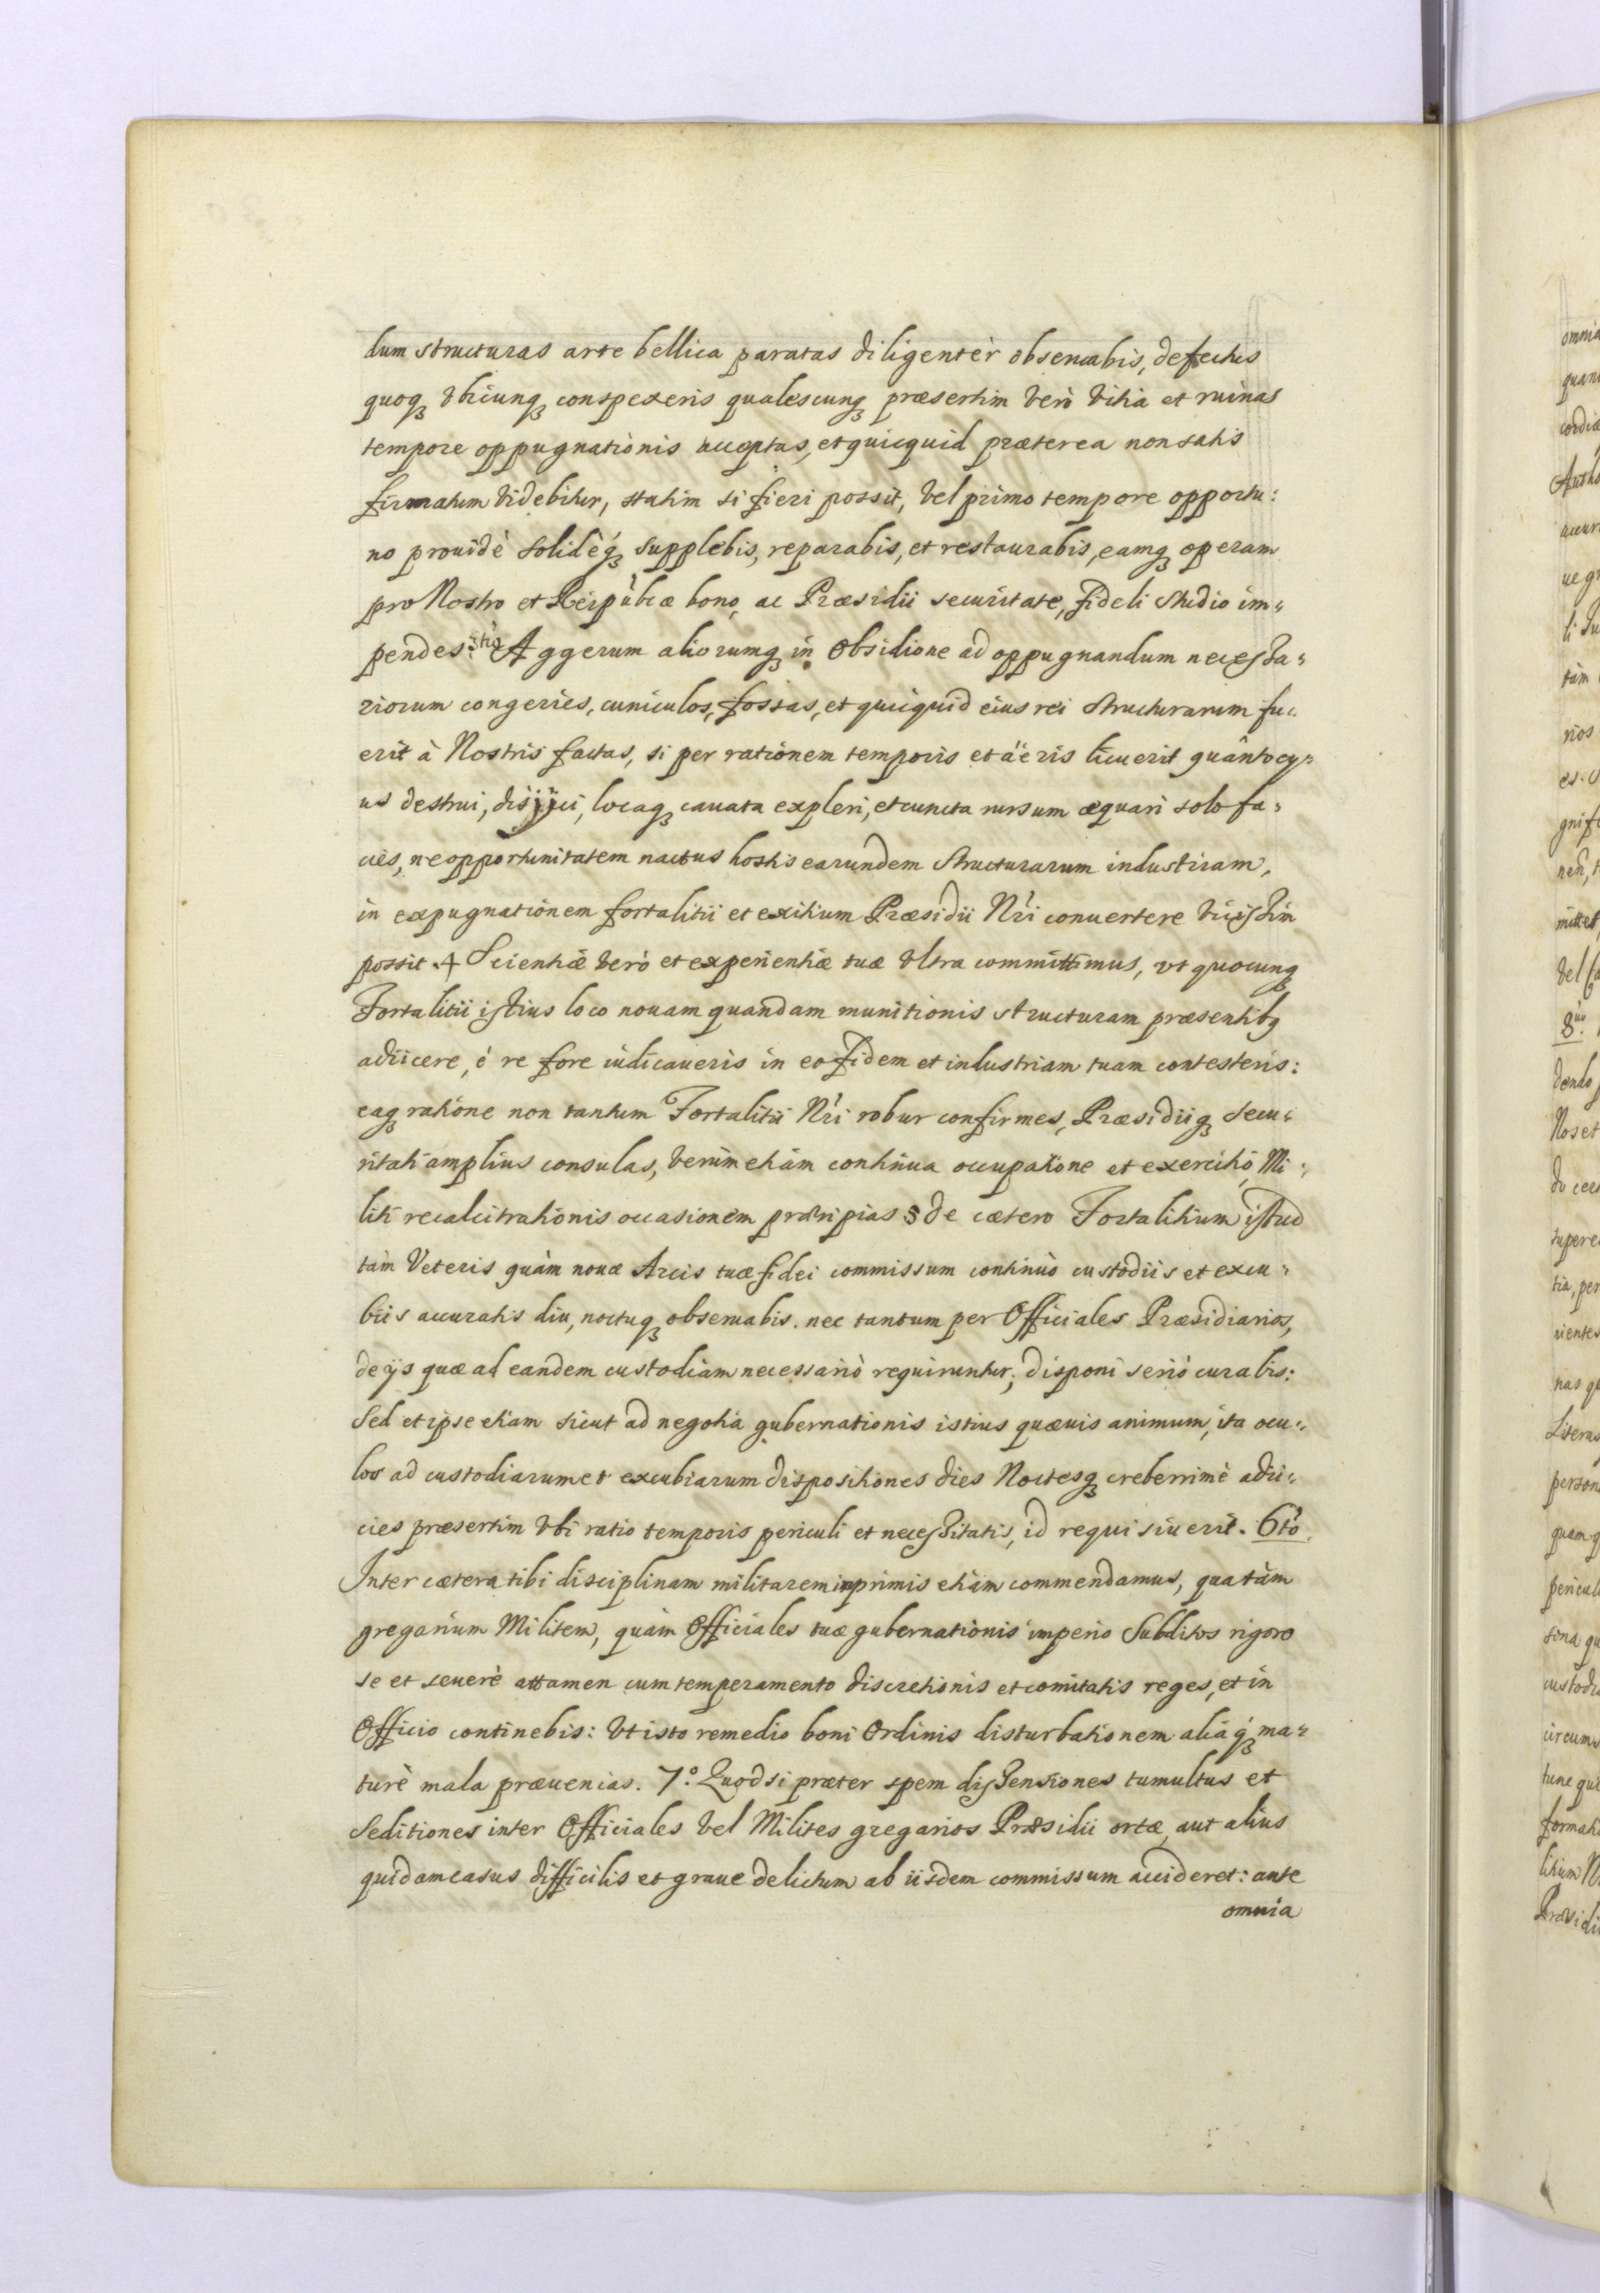 dum structuras arte bellica paratas diligentèr obseruabis, defectus
quoq₃ vbicunq₃ conspexeris qualescunq₃ præsertim verò vitia et ruinas
tempore oppugnationis acceptas, et quicquid præterea non satis
firmatum videbitur, statim si fieri possit, vel primo tempore opportu:
no prouidè solidèq₃ supplebis, reparabis, et restaurabis, eamq₃ operam
pro Nostro et Reipùbcæ bono, ac Præsidii securitate, fideli studio im„
pendes. Aggerum aliorumq₃ in Obsidione ad oppugnandum necessa„
riorum congeries, cuniculos, fossas, et quicquid eius rei structurarum fu„
erit à Nostris factas, si per rationem temporis et äeris licuerit quântocy„
us destrui, disijci, locaq₃ cauata expleri, et cuncta rursum æquari solo fa„
cies, ne opportunitatem nactus hostis earundem structurarum industriam,
in expugnationem fortalitii et exitium Præsidii Nr̃i conuertere vicissim
possit. 4 Scientiæ verò et experientiæ tuæ vltra committimus, vt quocunq₃
Fortalitii istius loco nouam quandam munitionis structuram præsentibq₃
adiicere, é re fore iudicaueris in eo fidem et industriam tuam contesteris:
eaq₃ ratione non tantum Fortalitii Nr̃i robur confirmes, Præsidiiq₃ secu„
ritati amplius consulas, verùm etiàm continua occupatione et exercitio Mi„
liti recalcitrationis occasionem præripias 5 de cætero Fortalitium istud
tàm Veteris quàm nouæ Arcis tuæ fidei commissum continùò custodiis et excu„
biis accuratis diu, noctuq₃ obseruabis. nec tantum per Officiales Præsidiarios,
de ijs quæ ad eandem custodiam necessariò requiruntur, disponi seriò curabis:
Sed et ipse etiam sicut ad negotia gubernationis istius quæuis animum, ita ocu„
los ad custodiarum et excubiarum dispositiones dies Noctesq₃ creberrimè adii„
cies præsertim vbi ratio temporis periculi et necessitatis, id requisiuerit. 6to
Inter cætera tibi disciplinam militarem inprimis etiàm commendamus, qua tàm
gregarium Militem, quàm Officiales tuæ gubernationis imperio Subditos rigoro
se et seuerè attamen cum temperamento discretionis et comitatis reges, et in
Officio continebis: Vt isto remedio boni Ordinis disturbationem aliáq₃ ma„
turè mala præuenias. 7º. Quod si præter spem dissensiones tumultus et
Seditiones inter Officiales vel Milites gregarios Præsidii ortæ, aut alius
quidam casus difficilis et graue delictum ab iisdem commissum accideret: ante
omnia